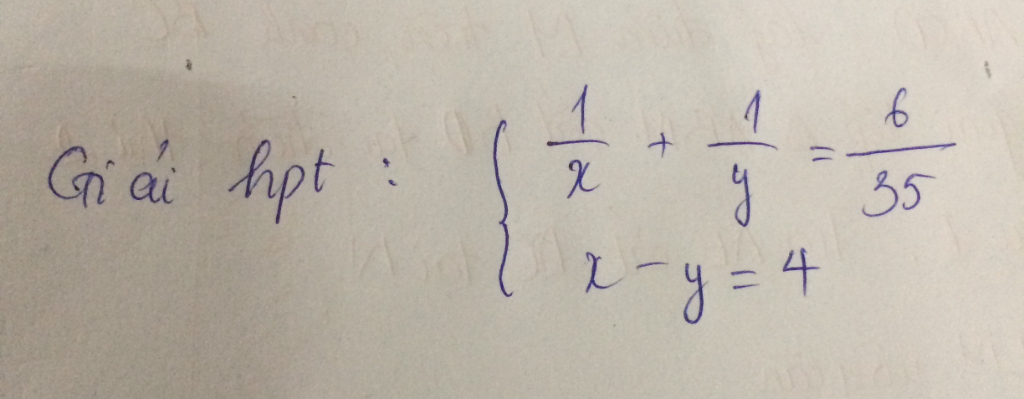 Giải hpt : { 1/x + 1/y = 6/35
x - y = 4